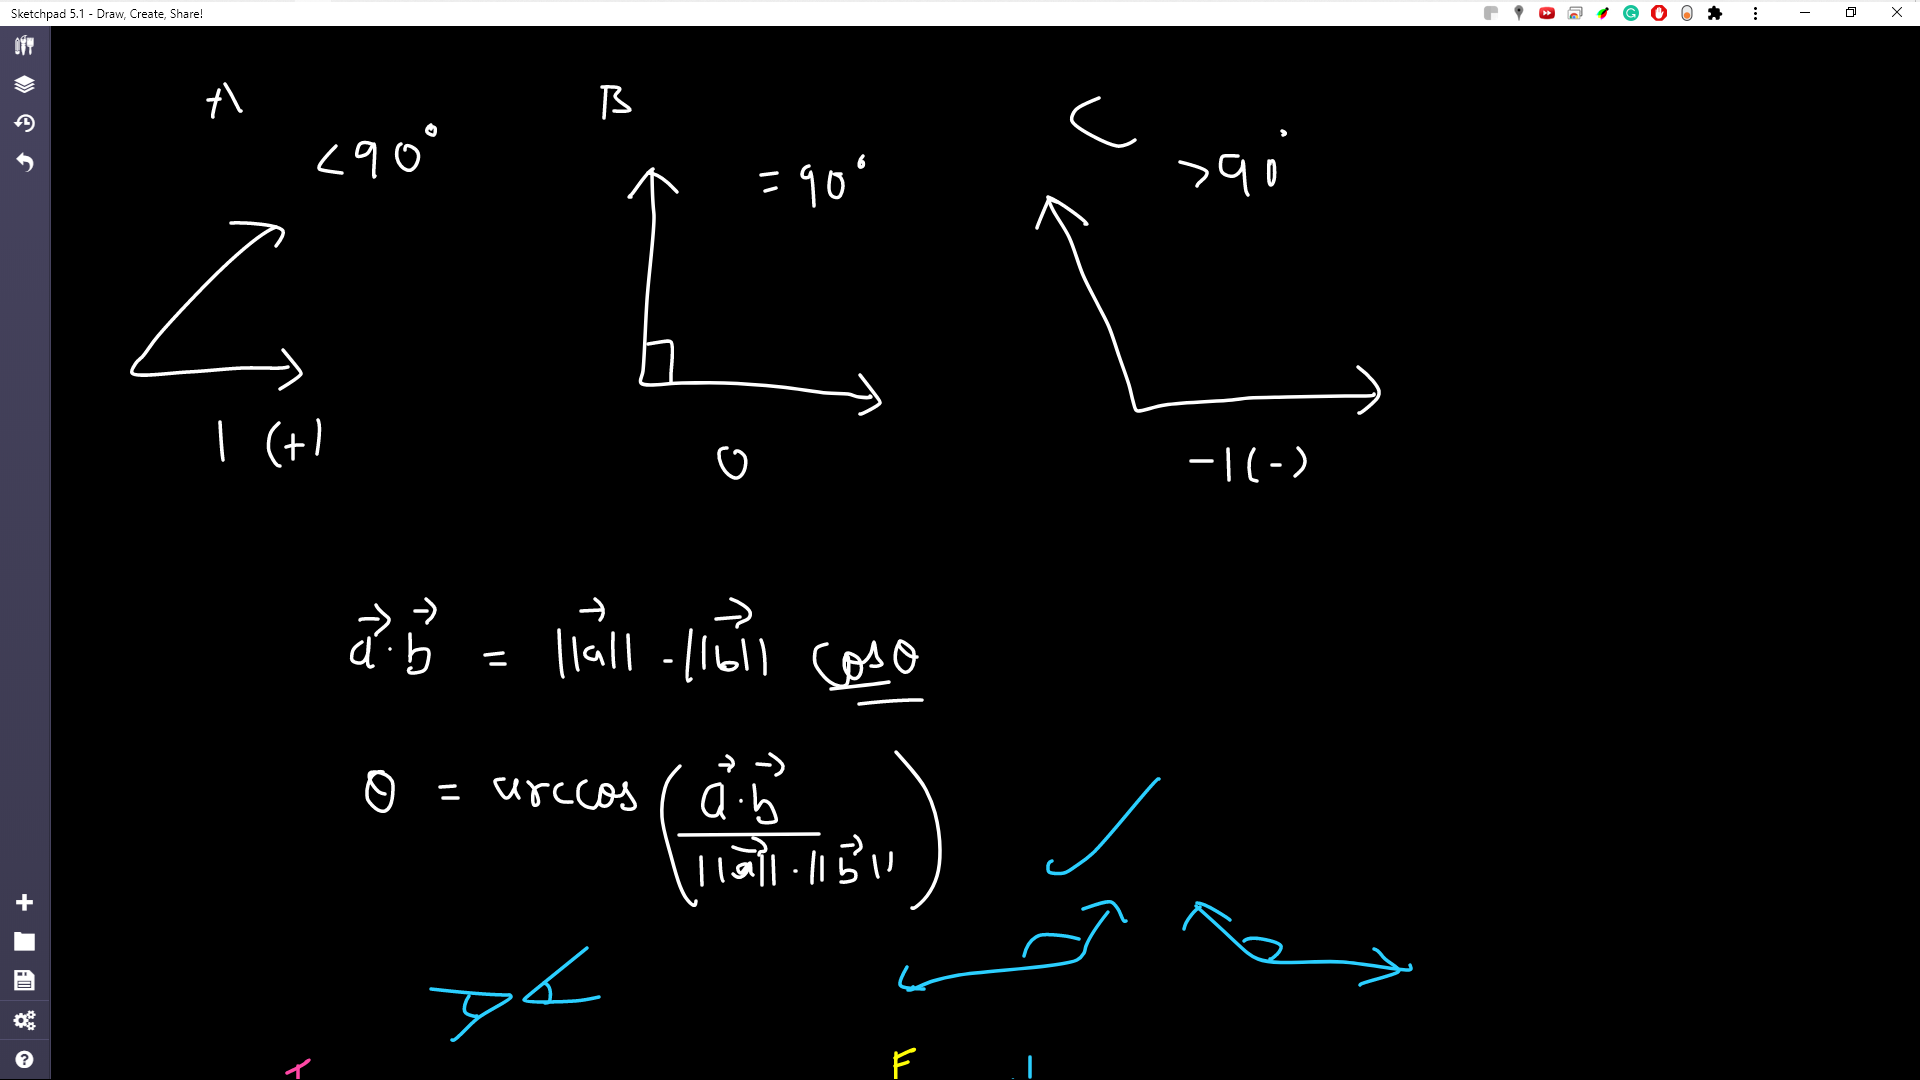 Sketchpad 5.1 - Draw, Create, Share!
A B C
<90° =90° >90°
1 (+) 0 -1(-)
a⃗·b⃗ = ||a⃗||·||b⃗|| cosθ
θ = arccos(a⃗·b⃗ / ||a⃗||·||b⃗||)